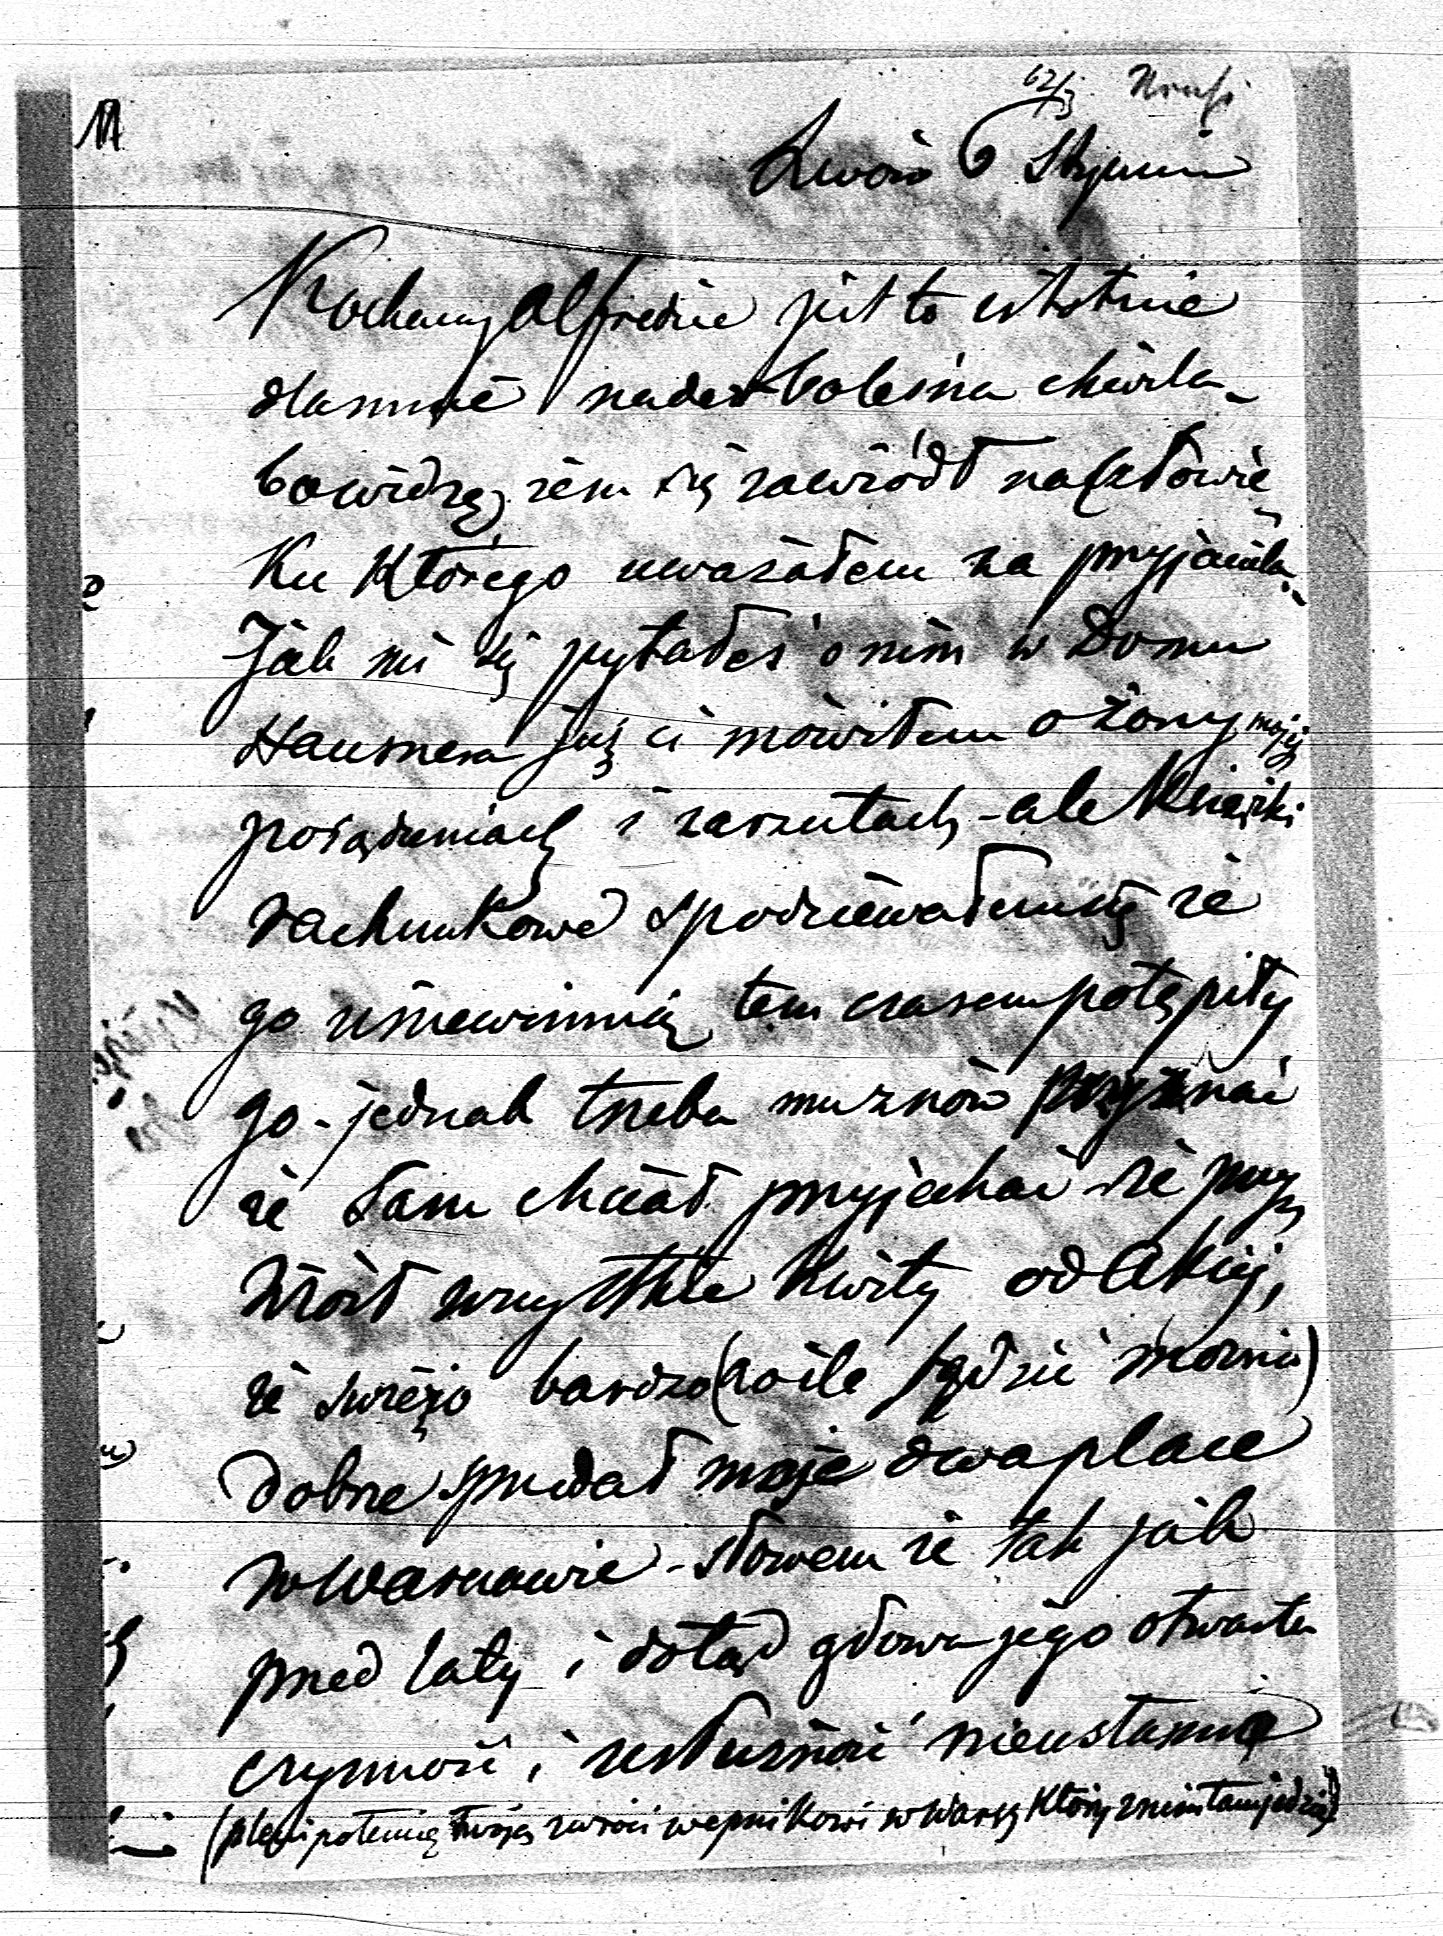 11
62/3
Lwów 6 Stycznia
Kochany Alfredzie jest to istotnie
dla mnie nader bolesna chwila -
bo widzę, żem się zawiódł na człowie
ku którego uważałem za przyjaciela.
Jak mi się pytałeś o nim w Domu
Hausnera już ci mówiłem o żony mojej
posądzeniach i zarzutach - ale Książki
rachunkowe spodziewałem się że
go uniewinnią tem czasem potępiły
go - jednak trzeba mu znów przyznać
że sam chciał przyjechać - że przy
wiózł wszystkie kwity od Akcyj,
że swiéżo bardzo (o ile sądzić można)
dobrze sprzedał moje dwa place
w Warszawie - słowem że tak jak
przed laty i dotąd głowa jego otwarta
czynność i usłużność nieustanna
(plenipotencię twoję zwróci w Warsz który z nim tam jedzie)